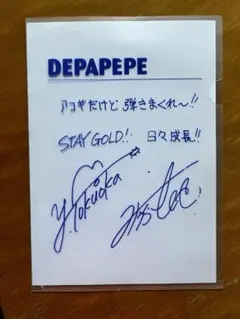 DEPAPEPE
アコギだけど 弾きまくれ〜!!
STAY GOLD!! 日々成長!!
y.Tokuoka